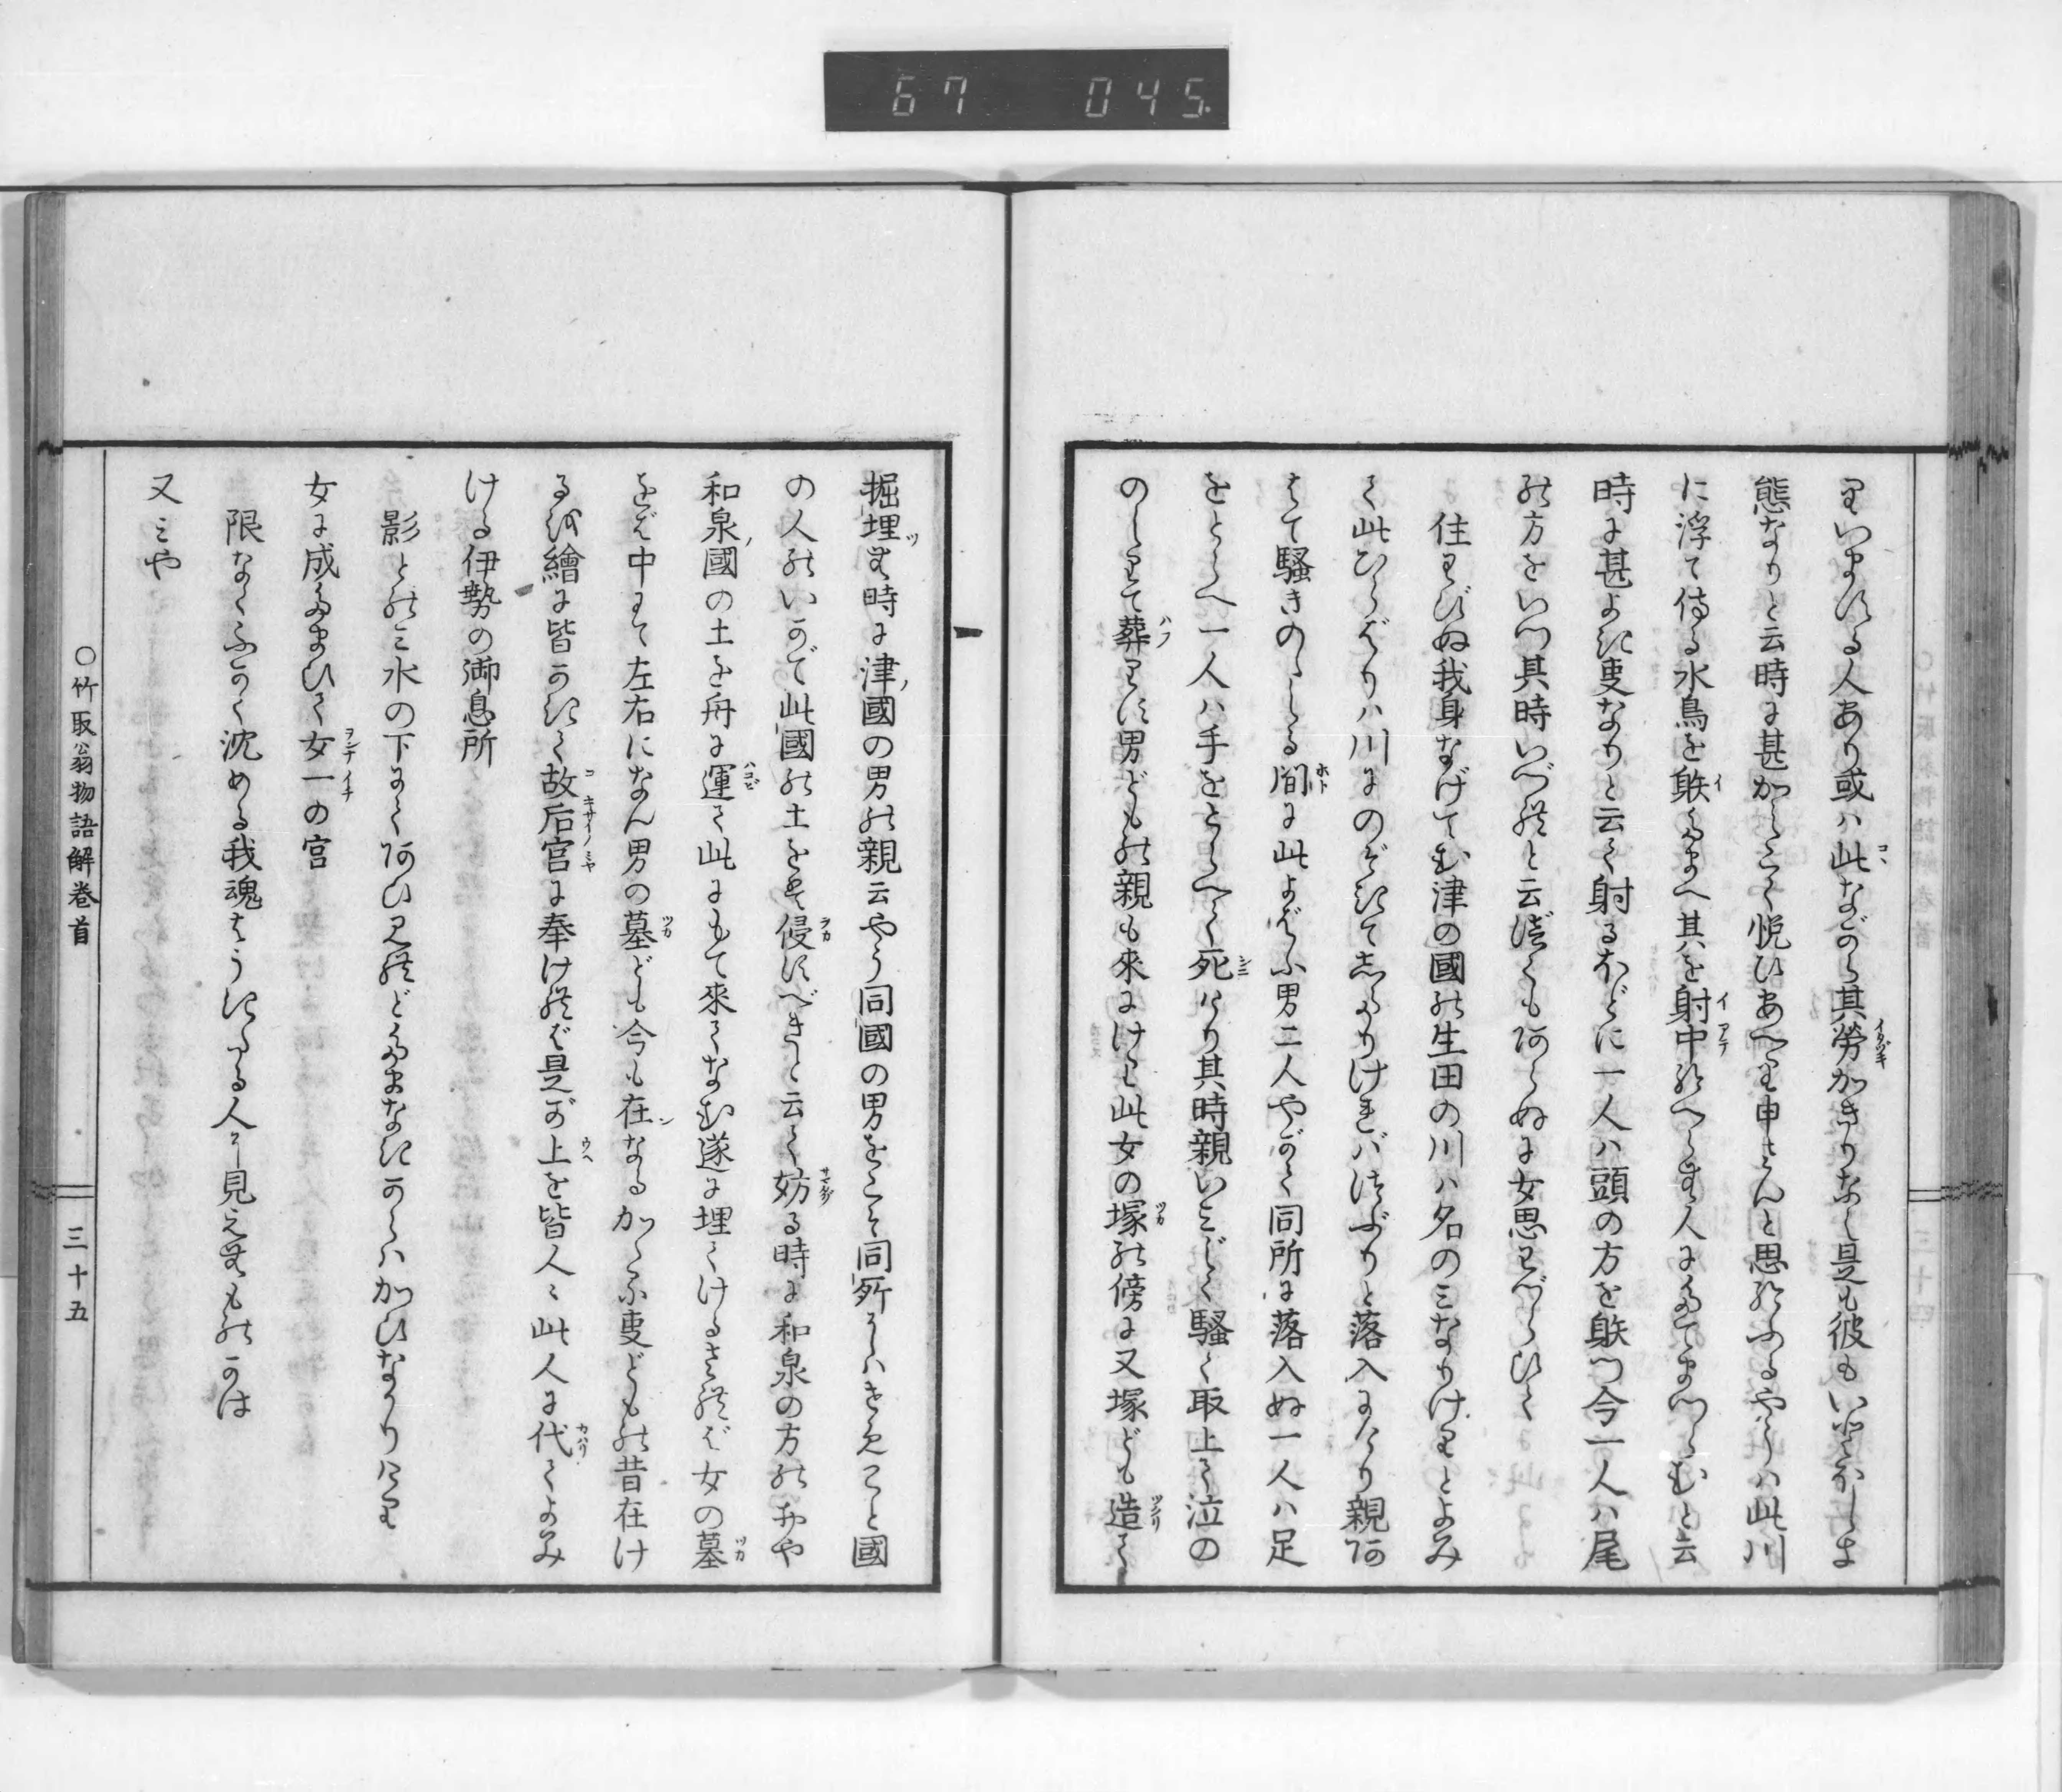 67 045
りいますかる人あり或ハ此ながら其勞かきりなし是も彼もいとほしき
態なりと云時に甚かしこく悦ひあへり申さんと思給ふるやうハ此川
に浮て侍る水鳥を䠶たまへ其を射中給へらむ人にたてまつらむと云
時に甚よき叓なりと云て射るほどに一人ハ頭の方を䠶つ今一人ハ尾
の方をいつ其時いづれと云べくもあらぬに女思わづらひて
住わびぬ我身なげてむ津の國の生田の川ハ名のミなりけりとよみ
て此ひらばりハ川にのぞきてしたりけれバづぶりと落入にけり親あ
はて騷きのゝしる間に此よばふ男二人やがて同所に落入ぬ一人ハ足
をとらへ一人ハ手をとらへて死けり其時親いミじく騷て取上て泣の
のしりて葬りす男どもの親も來にけり此女の塚の傍に又塚ども造て
掘埋む時に津國の男の親云やう同國の男をこそ同所にハせめこと國
の人のいかで此國の土をば侵すべきと云て妨る時に和泉の方のおや
和泉國の土を舟に運て此にもて來てなむ遂に埋てけるされば女の墓
をば中にて左右になん男の墓ども今も在なるかゝる叓どもの昔在け
るを繪に皆かきて故后宮に奉けれバ是が上を皆人〻此人に代てよみ
ける伊勢の御息所
影とのミ水の下にてあひ見れどたまなきからハかひなかりけり
女に成たまひて女一の宮
限なくふかく沈める我魂はうきたる人に見えむものかは
又ミや
○竹取翁物語解卷首
三十五